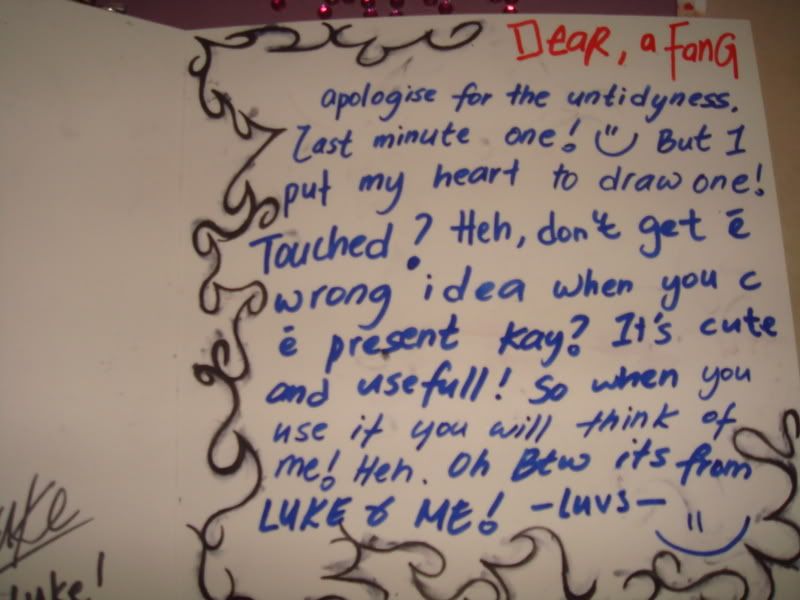 Dear, a Fang
apologise for the untidyness.
Last minute one! But I
put my heart to draw one!
Touched? Heh, don't get ē
wrong idea when you c
ē present kay? It's cute
and usefull! So when you
use it you will think of
me! Heh. Oh Btw its from
LUKE & ME! -luvs-
uke
Luke!